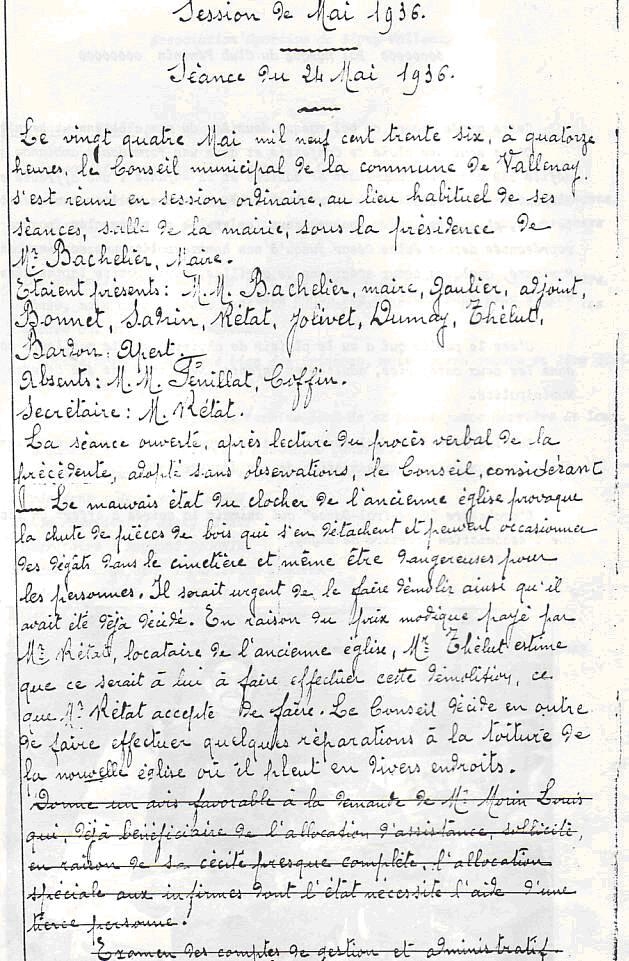 Session de Mai 1936.
Séance du 24 Mai 1936.
Le vingt quatre Mai mil neuf cent trente six, à quatorze
heures, le Conseil municipal de la commune de Vallenay
s'est réuni en session ordinaire, au lieu habituel de ses
séances, salle de la mairie, sous la présidence de
Mr Bachelier, Maire.
Etaient présents: M.M. Bachelier, maire, Gaulier, adjoint,
Bonnet, Sadrin, Rétat, Jolivet, Dumay, Thélut,
Bardon, Apert.
Absents: M.M. Feuillat, Coffin.
Secrétaire: M. Rétat.
La séance ouverte, après lecture du procès verbal de la
précédente, adopté sans observations, le Conseil, considérant
Le mauvais état du clocher de l'ancienne église provoque
la chute de pièces de bois qui s'en détachent et peuvent occasionner
des dégâts dans le cimetière et même être dangereuses pour
les personnes. Il serait urgent de le faire démolir ainsi qu'il
avait été déjà décidé. En raison du prix modique payé par
Mr Rétat, locataire de l'ancienne église, Mr Thélut estime
que ce serait à lui à faire effectuer cette démolition, ce
que Mr Rétat accepte de faire. Le Conseil décide en outre
de faire effectuer quelques réparations à la toiture de
la nouvelle église où il pleut en divers endroits.
Donne un avis favorable à la demande de Mr Morin Louis
qui, déjà bénéficiaire de l'allocation d'assistance, sollicite,
en raison de sa cécité presque complète, l'allocation
spéciale aux infirmes dont l'état nécessite l'aide d'une
tierce personne.
Examen des comptes de gestion et administratif.